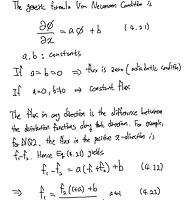 The generic formula Von Neumann Condition is
∂Ø/∂x = aØ + b (4.21)
a, b : constants
If a = b = 0 ⇒ flux is zero (adiabatic condition)
If a = 0, b ≠ 0 ⇒ Constant flux
The flux in any direction is the difference between
the distribution functions along that direction. For example,
for D2Q2, the flux in the positive x-direction is
f₁-f₂. Hence Eq. (4.21) yields
f₁ - f₂ = a(f₁+f₂) + b (4.22)
⇒ f₁ = f₂(1+a) + b and (4.23)